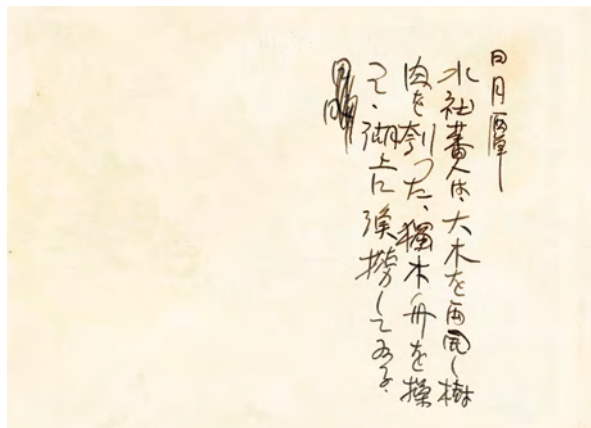 日月覃
水社蕃人は、大木を両開し樹
肉を刳つた、獨木舟を操
つて、湖上に漁撈してゐる